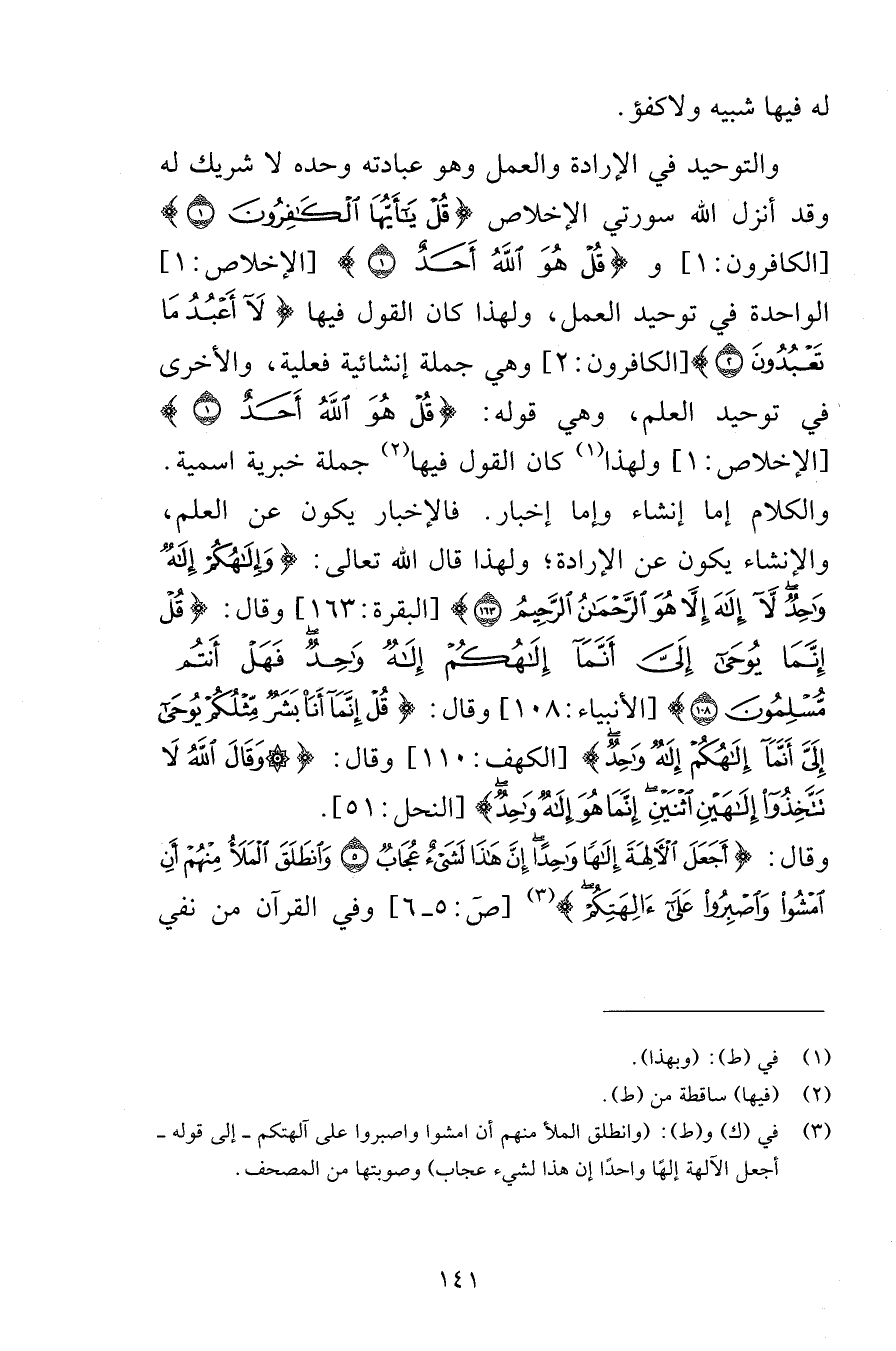 له فيها شبيه ولاكفؤ.
والتوحيد في الإرادة والعمل وهو عبادته وحده لا شريك له
وقد أنزل الله سورتي الإخلاص ﴿قُلْ يَٰٓأَيُّهَا ٱلْكَٰفِرُونَ ۝١﴾
[الكافرون:١] و ﴿قُلْ هُوَ ٱللَّهُ أَحَدٌ ۝١﴾ [الإخلاص:١]
الواحدة في توحيد العمل، ولهذا كان القول فيها ﴿لَآ أَعْبُدُ مَا
تَعْبُدُونَ ۝٢﴾[الكافرون:٢] وهي جملة إنشائية فعلية، والأخرى
في توحيد العلم، وهي قوله: ﴿قُلْ هُوَ ٱللَّهُ أَحَدٌ ۝١﴾
[الإخلاص:١] ولهذا(١) كان القول فيها(٢) جملة خبرية اسمية.
والكلام إما إنشاء وإما إخبار. فالإخبار يكون عن العلم،
والإنشاء يكون عن الإرادة؛ ولهذا قال الله تعالى: ﴿وَإِلَٰهُكُمْ إِلَٰهٌ
وَٰحِدٌ ۖ لَّآ إِلَٰهَ إِلَّا هُوَ ٱلرَّحْمَٰنُ ٱلرَّحِيمُ ۝١٦٣﴾ [البقرة:١٦٣] وقال: ﴿قُلْ
إِنَّمَا يُوحَىٰٓ إِلَىَّ أَنَّمَآ إِلَٰهُكُمْ إِلَٰهٌ وَٰحِدٌ ۖ فَهَلْ أَنتُم
مُّسْلِمُونَ ۝١٠٨﴾ [الأنبياء:١٠٨] وقال: ﴿قُلْ إِنَّمَآ أَنَا۠ بَشَرٌ مِّثْلُكُمْ يُوحَىٰٓ
إِلَىَّ أَنَّمَآ إِلَٰهُكُمْ إِلَٰهٌ وَٰحِدٌ ۖ﴾ [الكهف:١١٠] وقال: ﴿۞وَقَالَ ٱللَّهُ لَا
تَتَّخِذُوٓا۟ إِلَٰهَيْنِ ٱثْنَيْنِ ۖ إِنَّمَا هُوَ إِلَٰهٌ وَٰحِدٌ ۖ﴾ [النحل:٥١].
وقال: ﴿أَجَعَلَ ٱلْءَالِهَةَ إِلَٰهًا وَٰحِدًا ۖ إِنَّ هَٰذَا لَشَىْءٌ عُجَابٌ ۝٥ وَٱنطَلَقَ ٱلْمَلَأُ مِنْهُمْ أَنِ
ٱمْشُوا۟ وَٱصْبِرُوا۟ عَلَىٰٓ ءَالِهَتِكُمْ ۖ﴾(٣) [صَ:٥ـ٦] وفي القرآن من نفي
(١) في (ط): (وبهذا).
(٢) (فيها) ساقطة من (ط).
(٣) في (ك) و(ط): (وانطلق الملأ منهم أن امشوا واصبروا على آلهتكم ـ إلى قوله ـ
أجعل الآلهة إلهًا واحدًا إن هذا لشيء عجاب) وصوبتها من المصحف.
١٤١